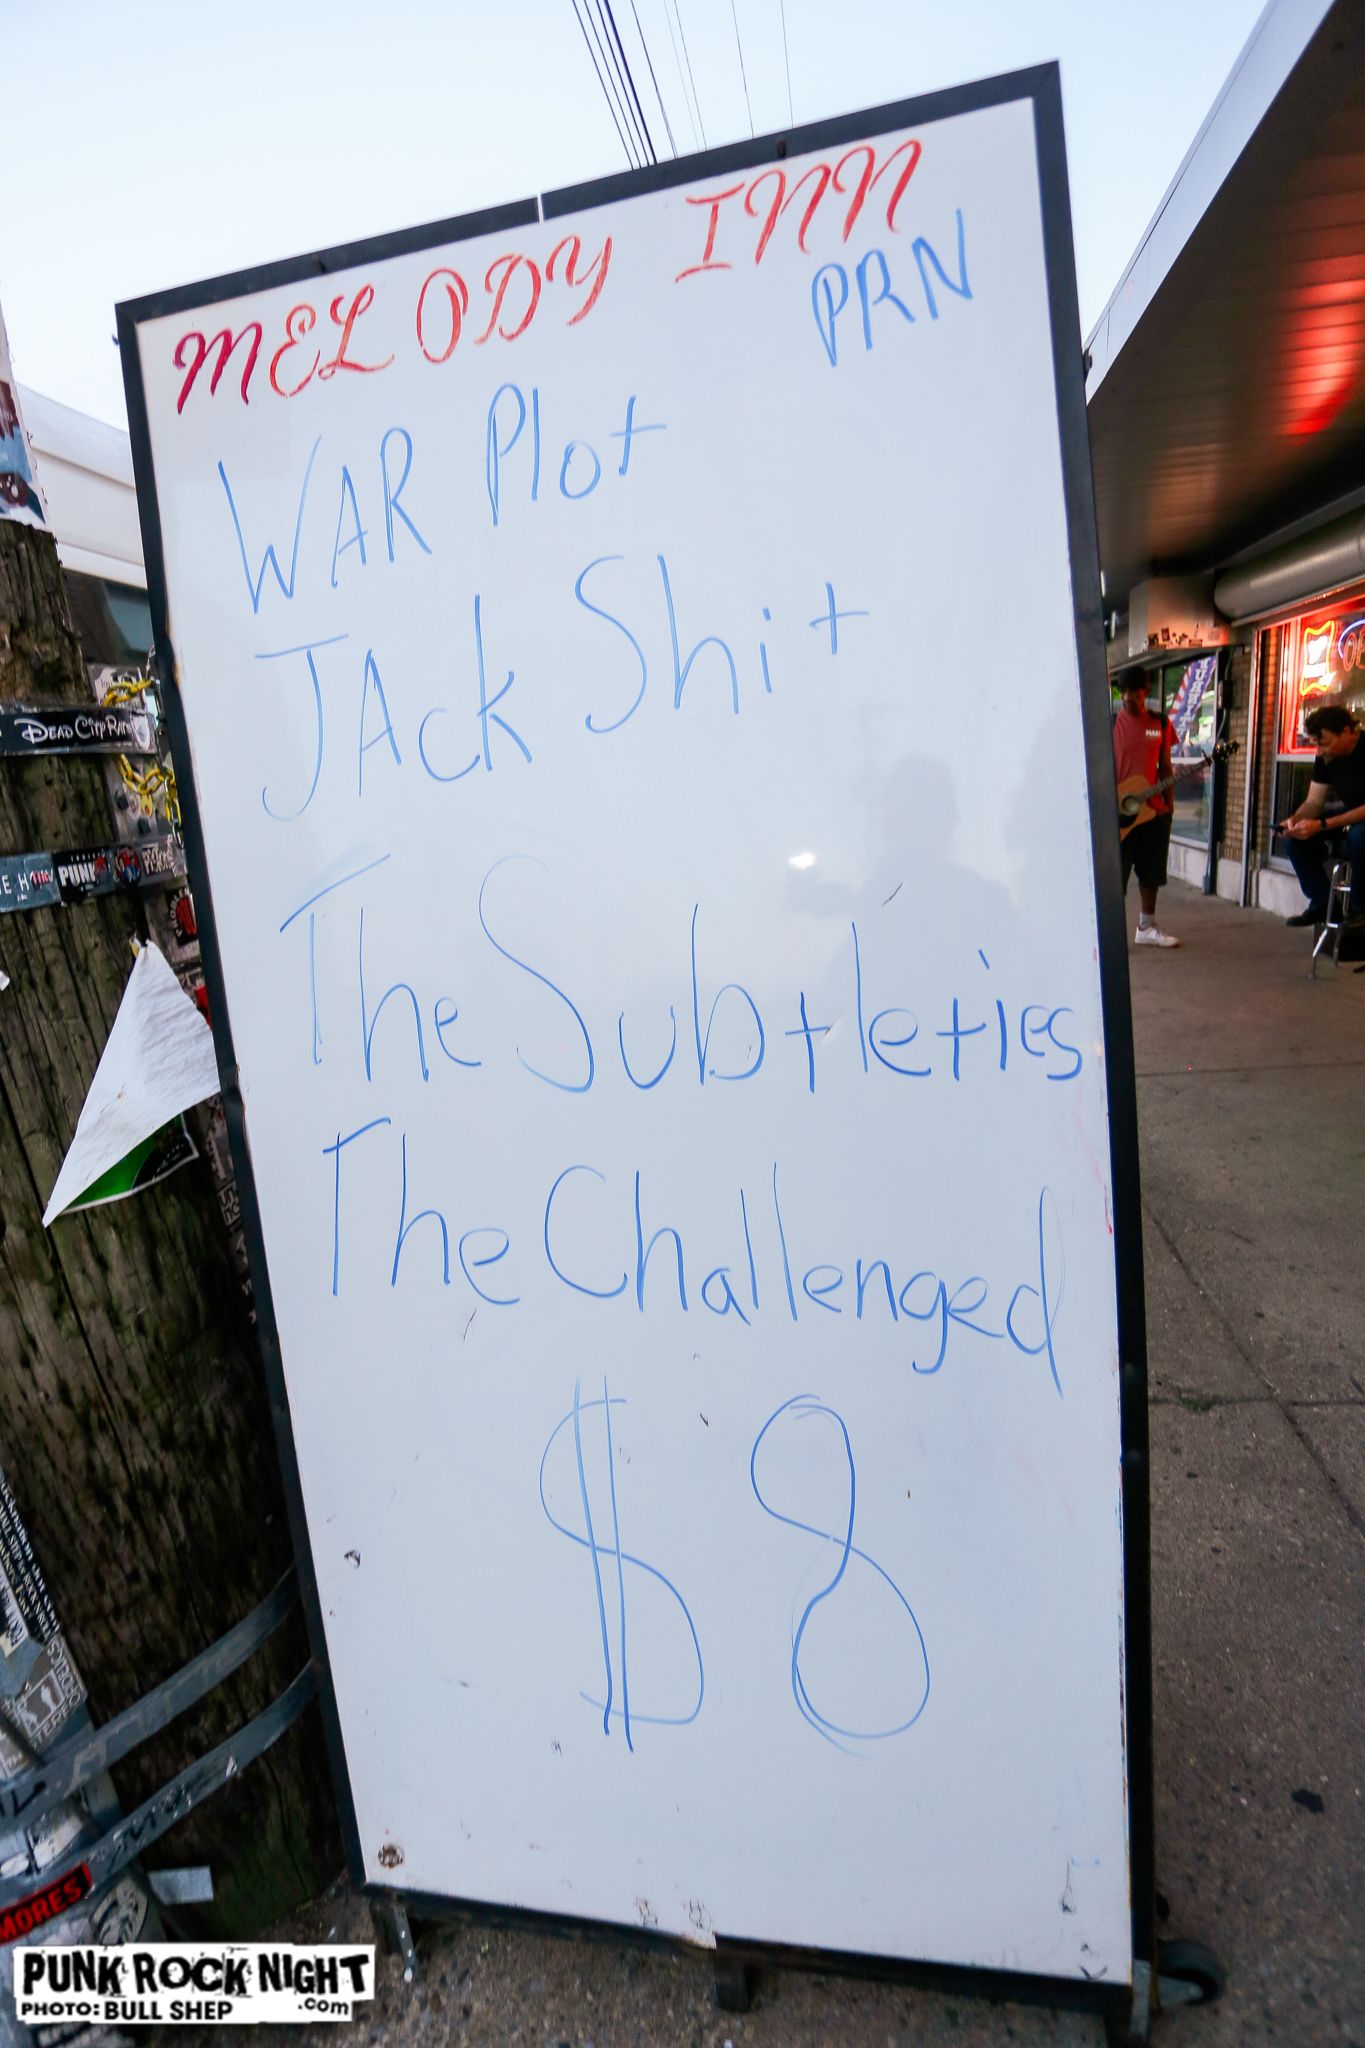 MELODY INN
PRN
WAR Plot
JAck Shit
The Subtleties
The Challenged
$8
DEAD CITY
PUNK
MORES
PUNK ROCK NIGHT
.com
PHOTO: BULL SHEP